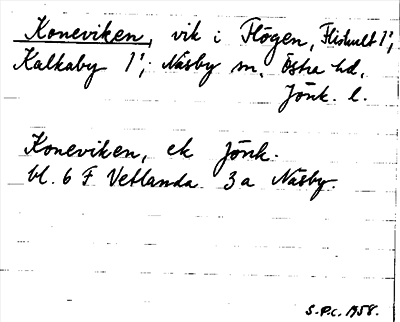 Koneviken, vik i Flögen, Flishult 1';
Kalkaby 1'; Näsby sn, Östra hd,
Jönk. l.
Koneviken, ek Jönk.
bl. 6 F Vetlanda 3a Näsby.
S.P.C. 1958.